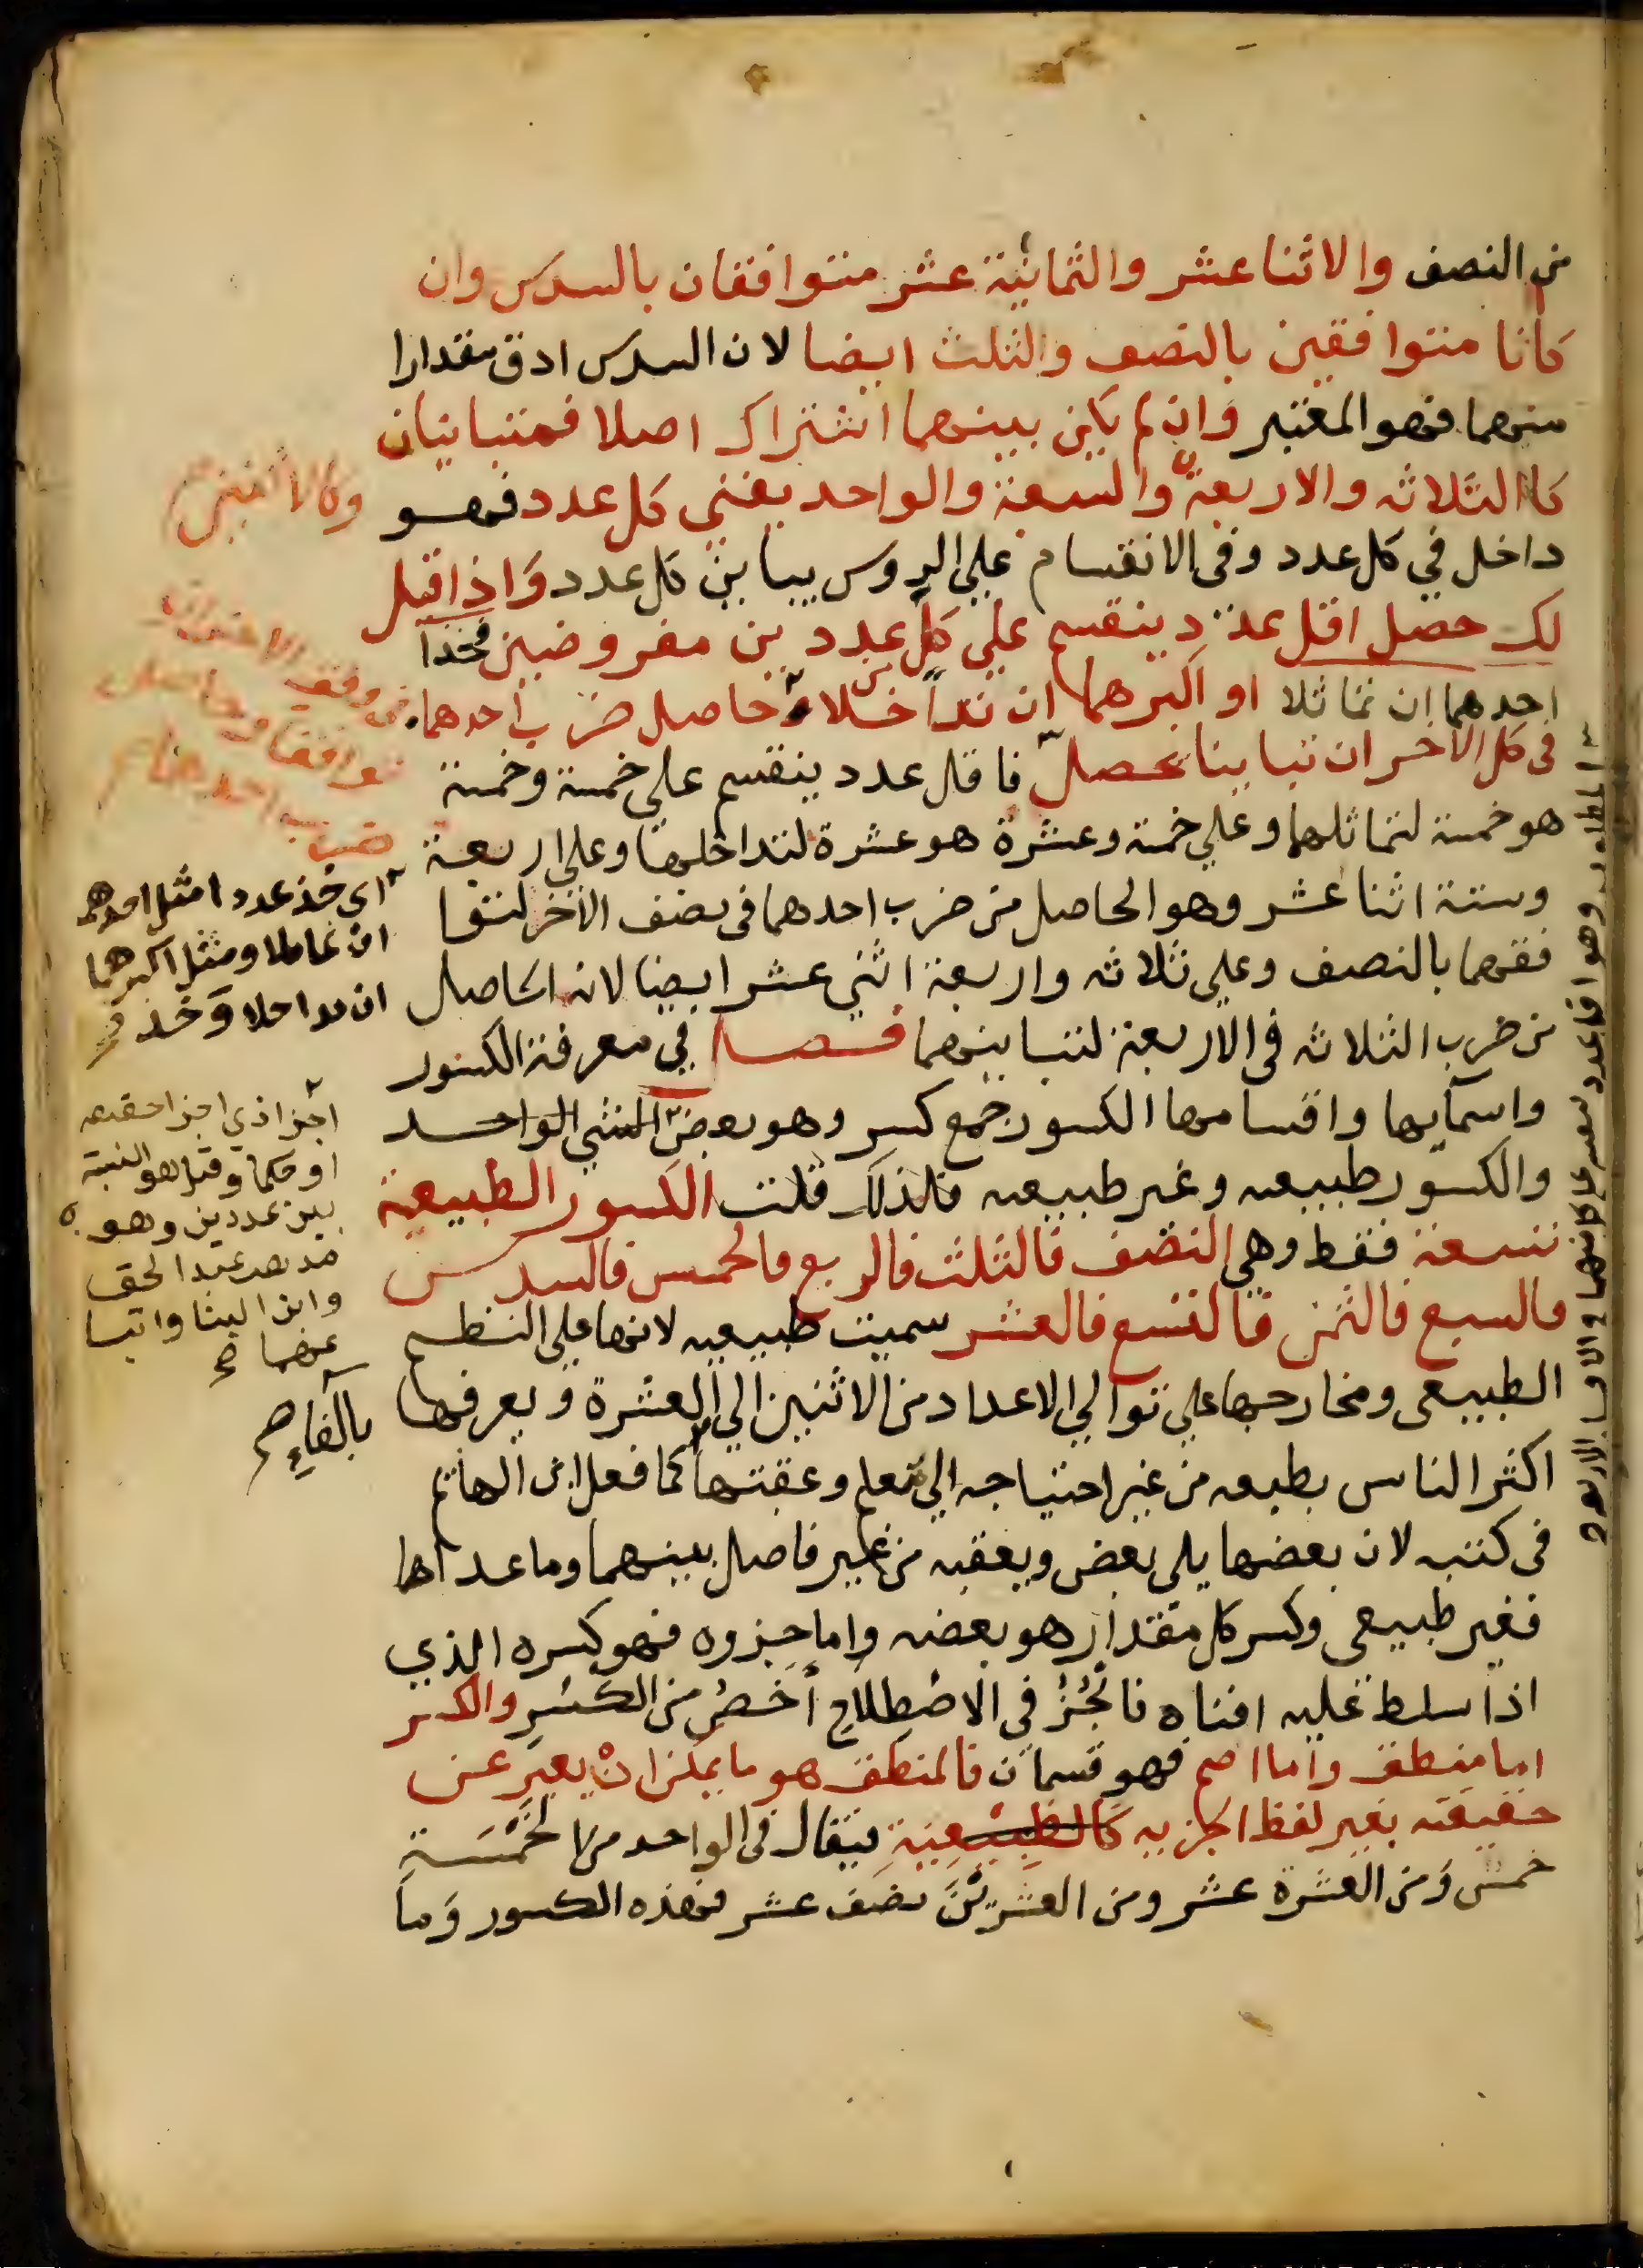 من النصف والاثنا عشر والثمانية عشر متوافقان بالسدس وان
كانا متوافقين بالنصف والثلث ايضا لان السدس ادق مقدارا
منهما فهو المعتبر وان لم يكن بينهما اشتراك اصلا فمتباينان
كالثلاثه والاربعة والسبعة والواحد يفني كل عدد فهو
داخل في كل عدد وفي الانقسام علي الروس يباين كل عدد واذا قيل
لك حصل اقل عدد ينقسم علي كل عددين مفروضين فخذا
احدهما ان تماثلا او اكبرهما ان تداخلا وحاصل ضرب احدهما
في كل الاخر ان تباينا يحصل فاقل عدد ينقسم علي خمسة وخمسة
هو خمسة لتماثلهما وعلي خمسة وعشرة هو عشرة لتداخلهما وعلي اربعة
وستة اثنا عشر وهو الحاصل من ضرب احدهما في نصف الاخر لتوا
فقهما بالنصف وعلي ثلاثه واربعة اثني عشر ايضا لانه الحاصل
من ضرب الثلاثه في الاربعة لتباينهما فصل في معرفة الكسور
واسمآيها واقسامها الكسور جمع كسر وهو بعض الشي الواحد
والكسور طبيعيه وغير طبيعيه فلذلك قلت الكسور الطبيعية
تسعة فقط وهي النصف فالثلث فالربع فالخمس فالسدس
فالسبع فالثمن فالتسع فالعشر سميت طبيعيه لانها علي النظم
الطبيعي ومخارجها علي توالي الاعداد من الاثنين الي العشرة ويعرفها
اكثر الناس بطبعه من غير احتياجه الي تعلم وعقبتها كما فعل ابن الهاتم
في كتبه لان بعضها يلي بعض ويعقبه من غير فاصل بينهما وما عداها
فغير طبيعي وكسر كل مقدار هو بعضه واما جزوه فهو كسره الذي
اذا سلط عليه افناه فالجُزُ في الاصْطِلاحِ أخصُ من الكسْرِ والكسر
اما منطق واما اصم فهو قسمان فالمنطق هو ما يمكن ان يعبر عن
حقيقته بغير لفظ الجزييه كالطبيعية فيقال في الواحد من الخَمْسَةِ
خمس وَمن العشرة عشر ومن العشرِينَ نصف عشر فهذه الكسور وَما
وكالاثنين
في وفق الاخر ان
توافقا وحاصل
ضرب احدهما
اي خذ عددا مثل احدهما
ان تماثلا ومثل اكبرهما
ان تداخلا وَخذ
اجزا ذي اجزا حقيقه
او حكما وقيل هو النسبة
بين عددين وهو
مذهب عبد الحق
وابن البنا واتبا
عهما صح
بالفاءِ صح